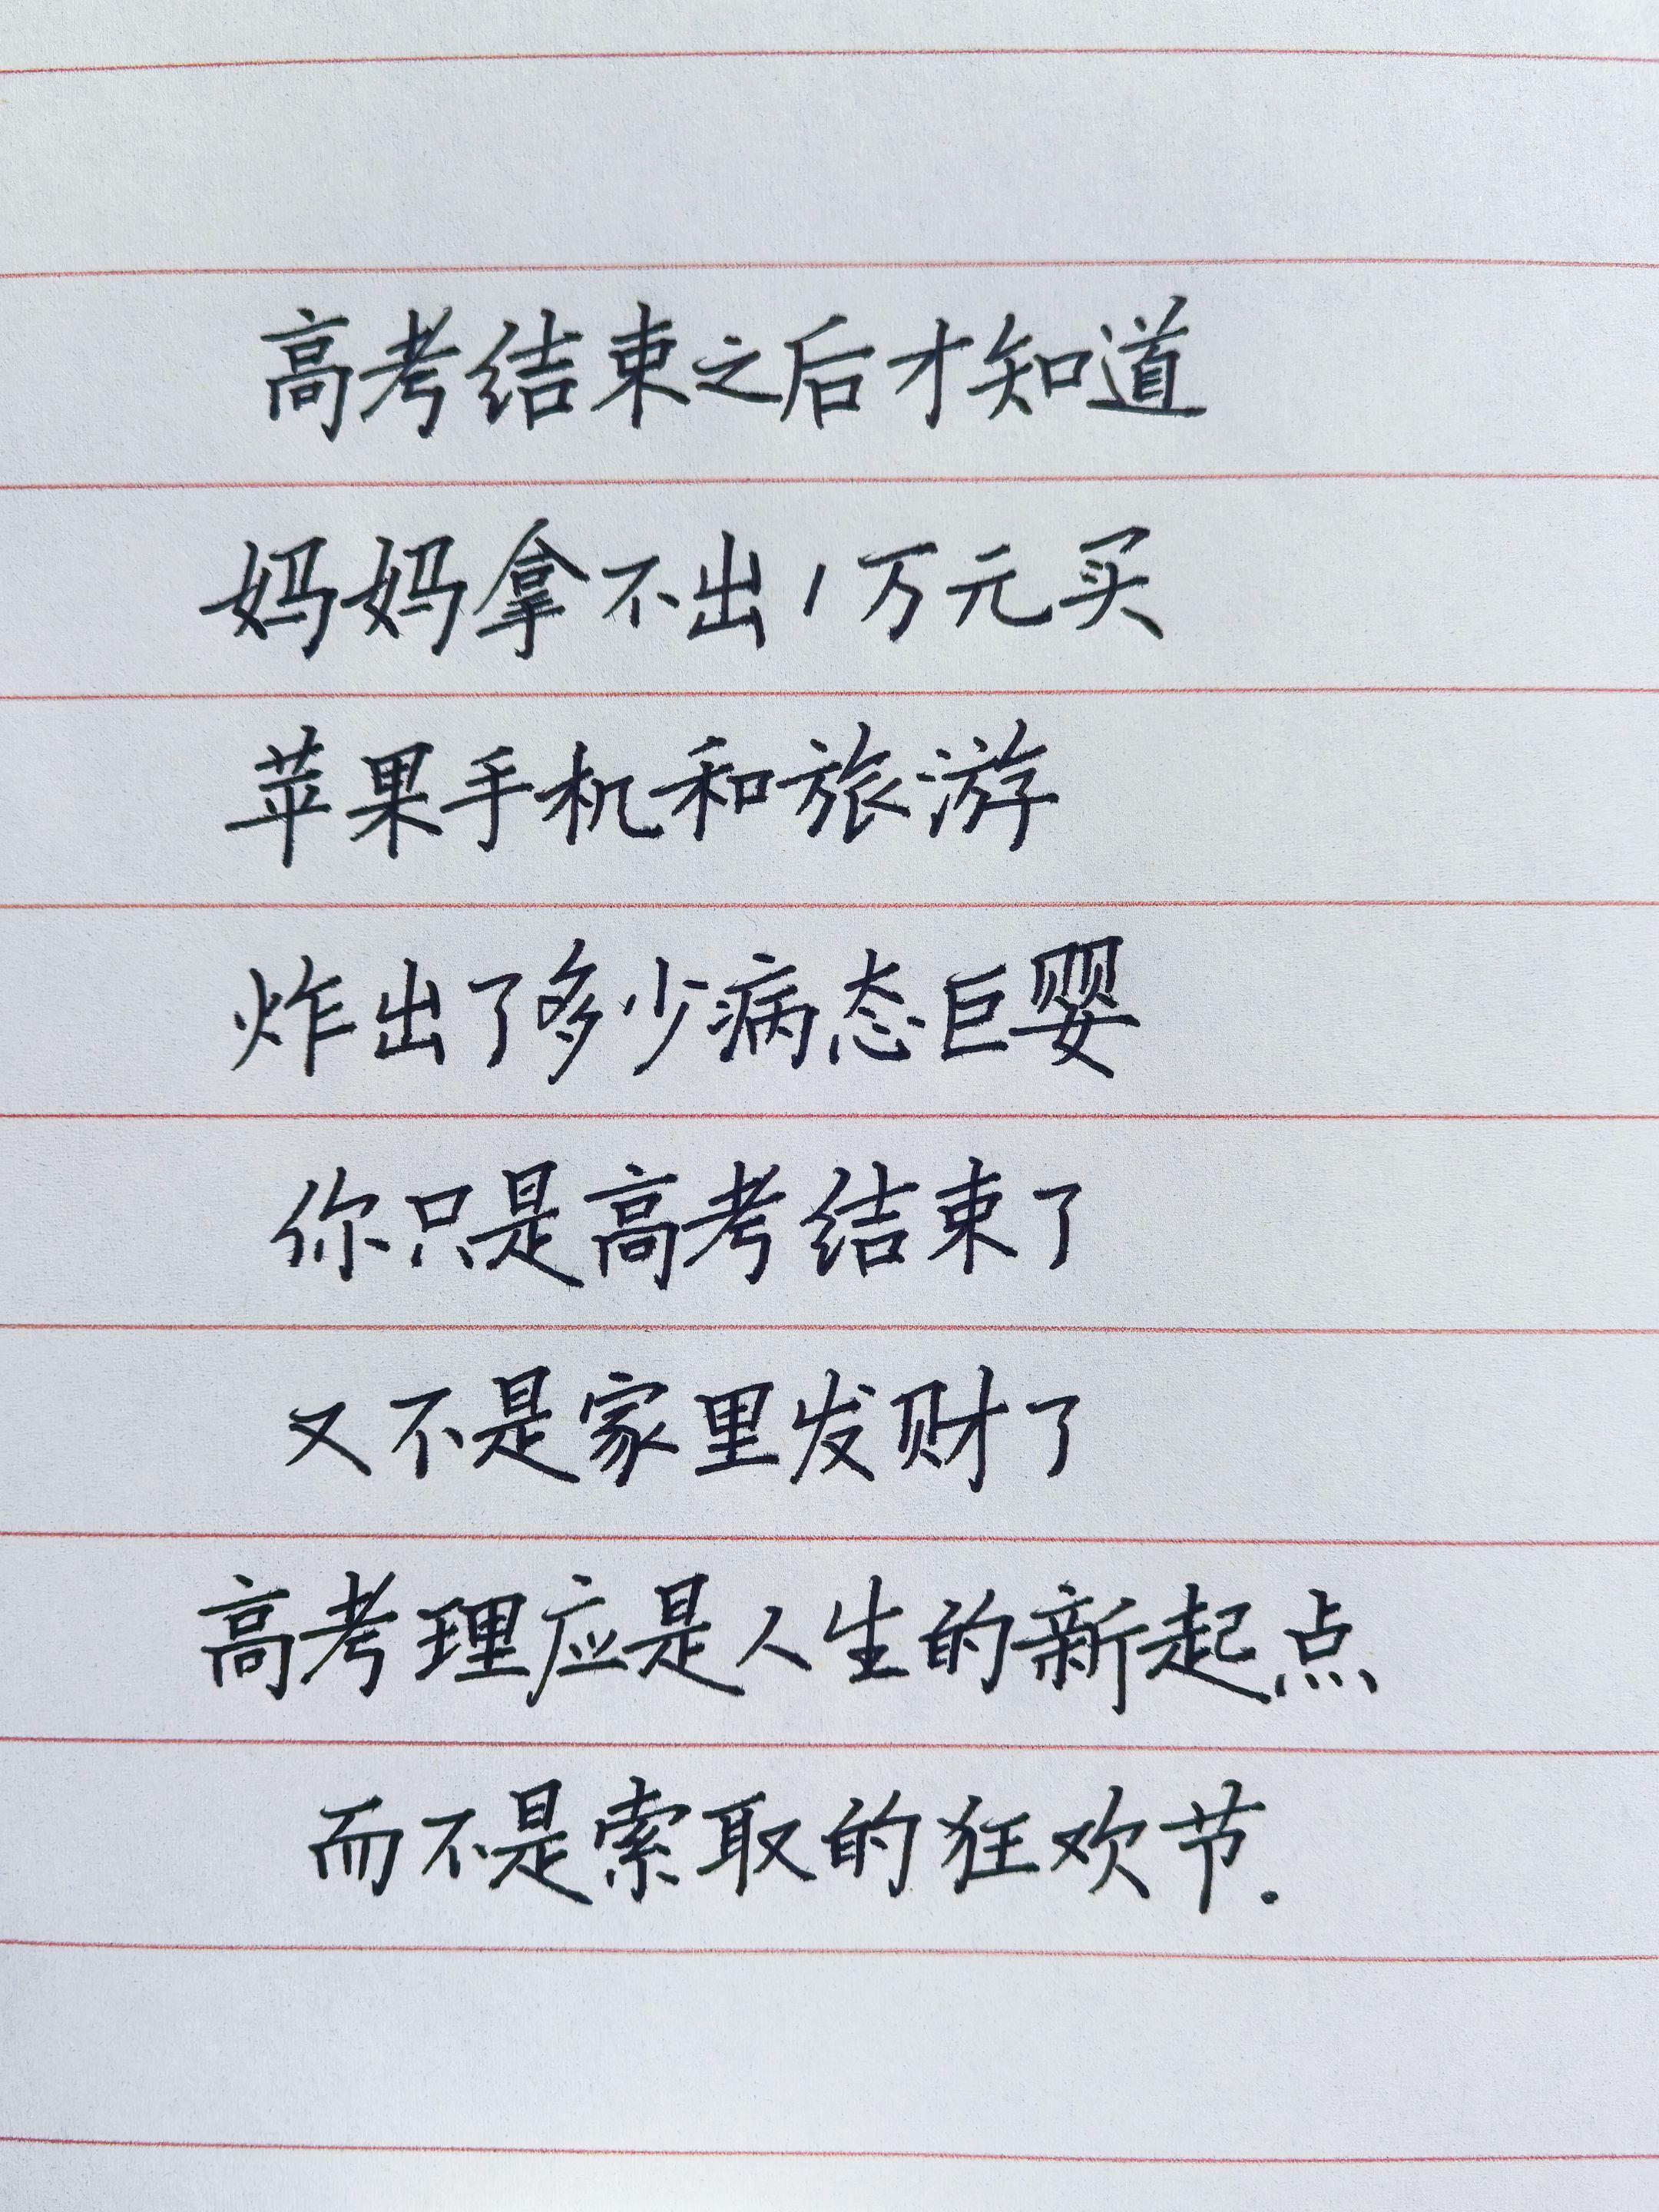 高考结束之后才知道
妈妈拿不出1万元买
苹果手机和旅游
炸出了多少病态巨婴
你只是高考结束了
又不是家里发财了
高考理应是人生的新起点
而不是索取的狂欢节.